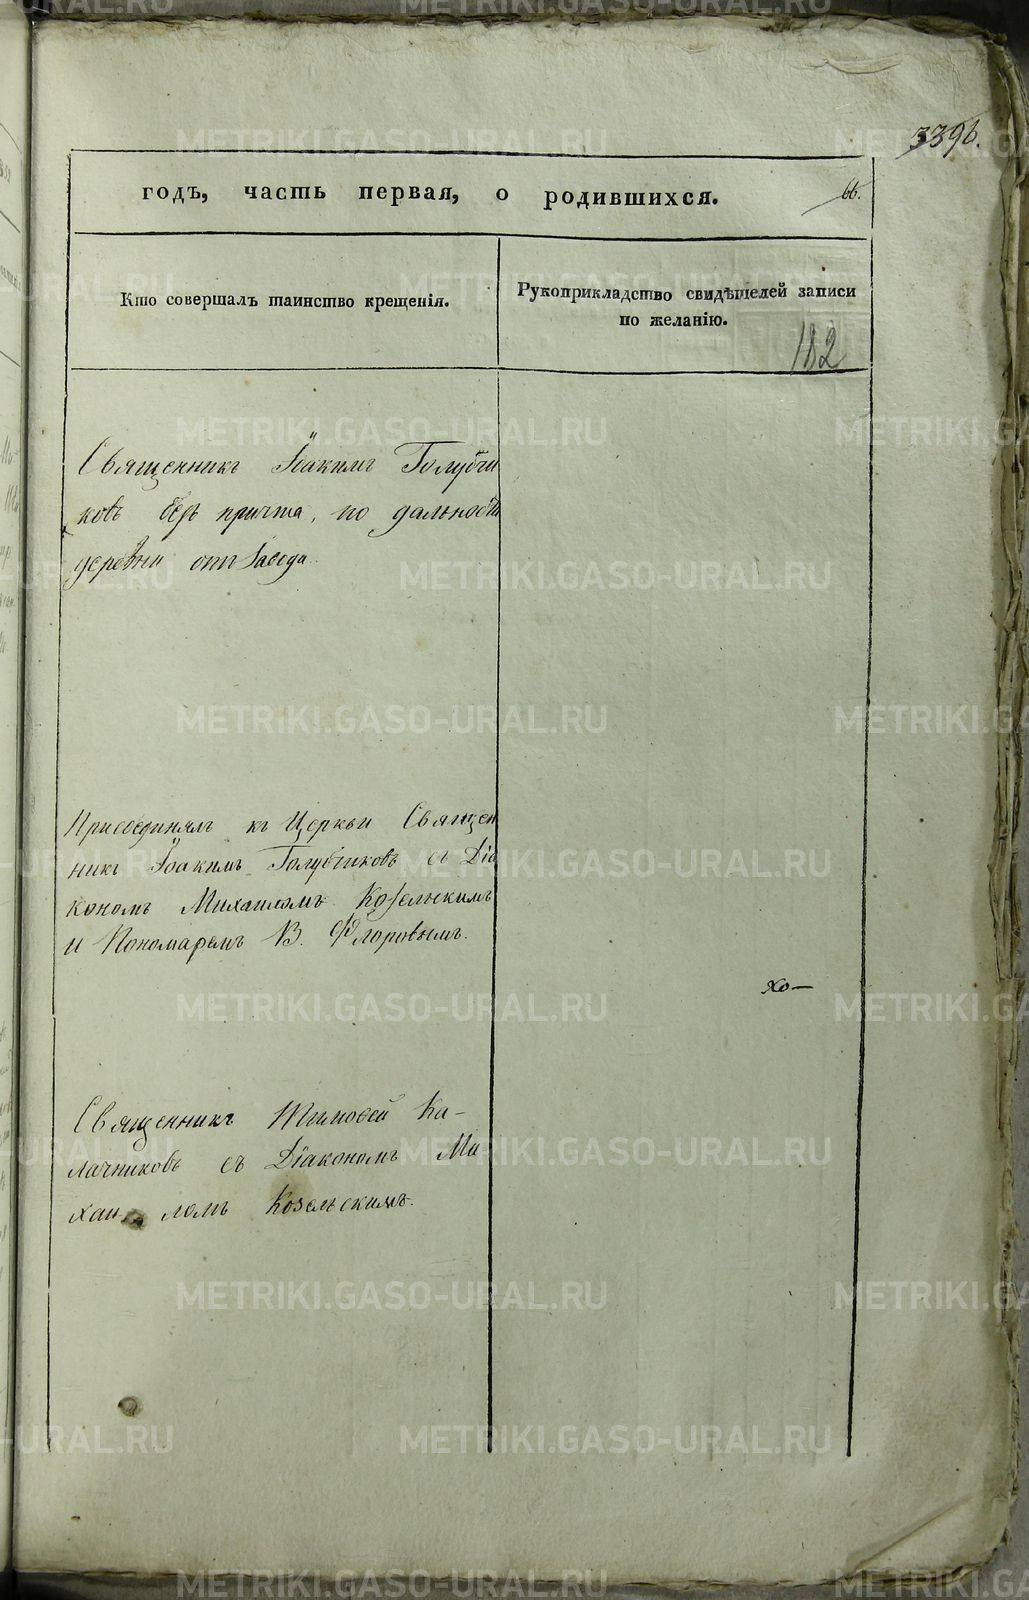 3396.
годъ, часть первая, о родившихся.
66.
Кто совершалъ таинство крещенія.
Рукоприкладство свидѣтелей записи
по желанію.
182
Священникъ Іоакимъ Голубчи
ковъ безъ причта, по дальности
деревни отъ
Присоединялъ къ Церкви Священ
никъ Іоакимъ Голубчиковъ съ Діа
кономъ Михаиломъ Козельскимъ
и Пономаремъ В. Флоровымъ.
хо—
Священникъ Тимофей Ка-
лачниковъ съ Діакономъ Ми
хаиломъ Козельскимъ.
METRIKI.GASO-URAL.RU